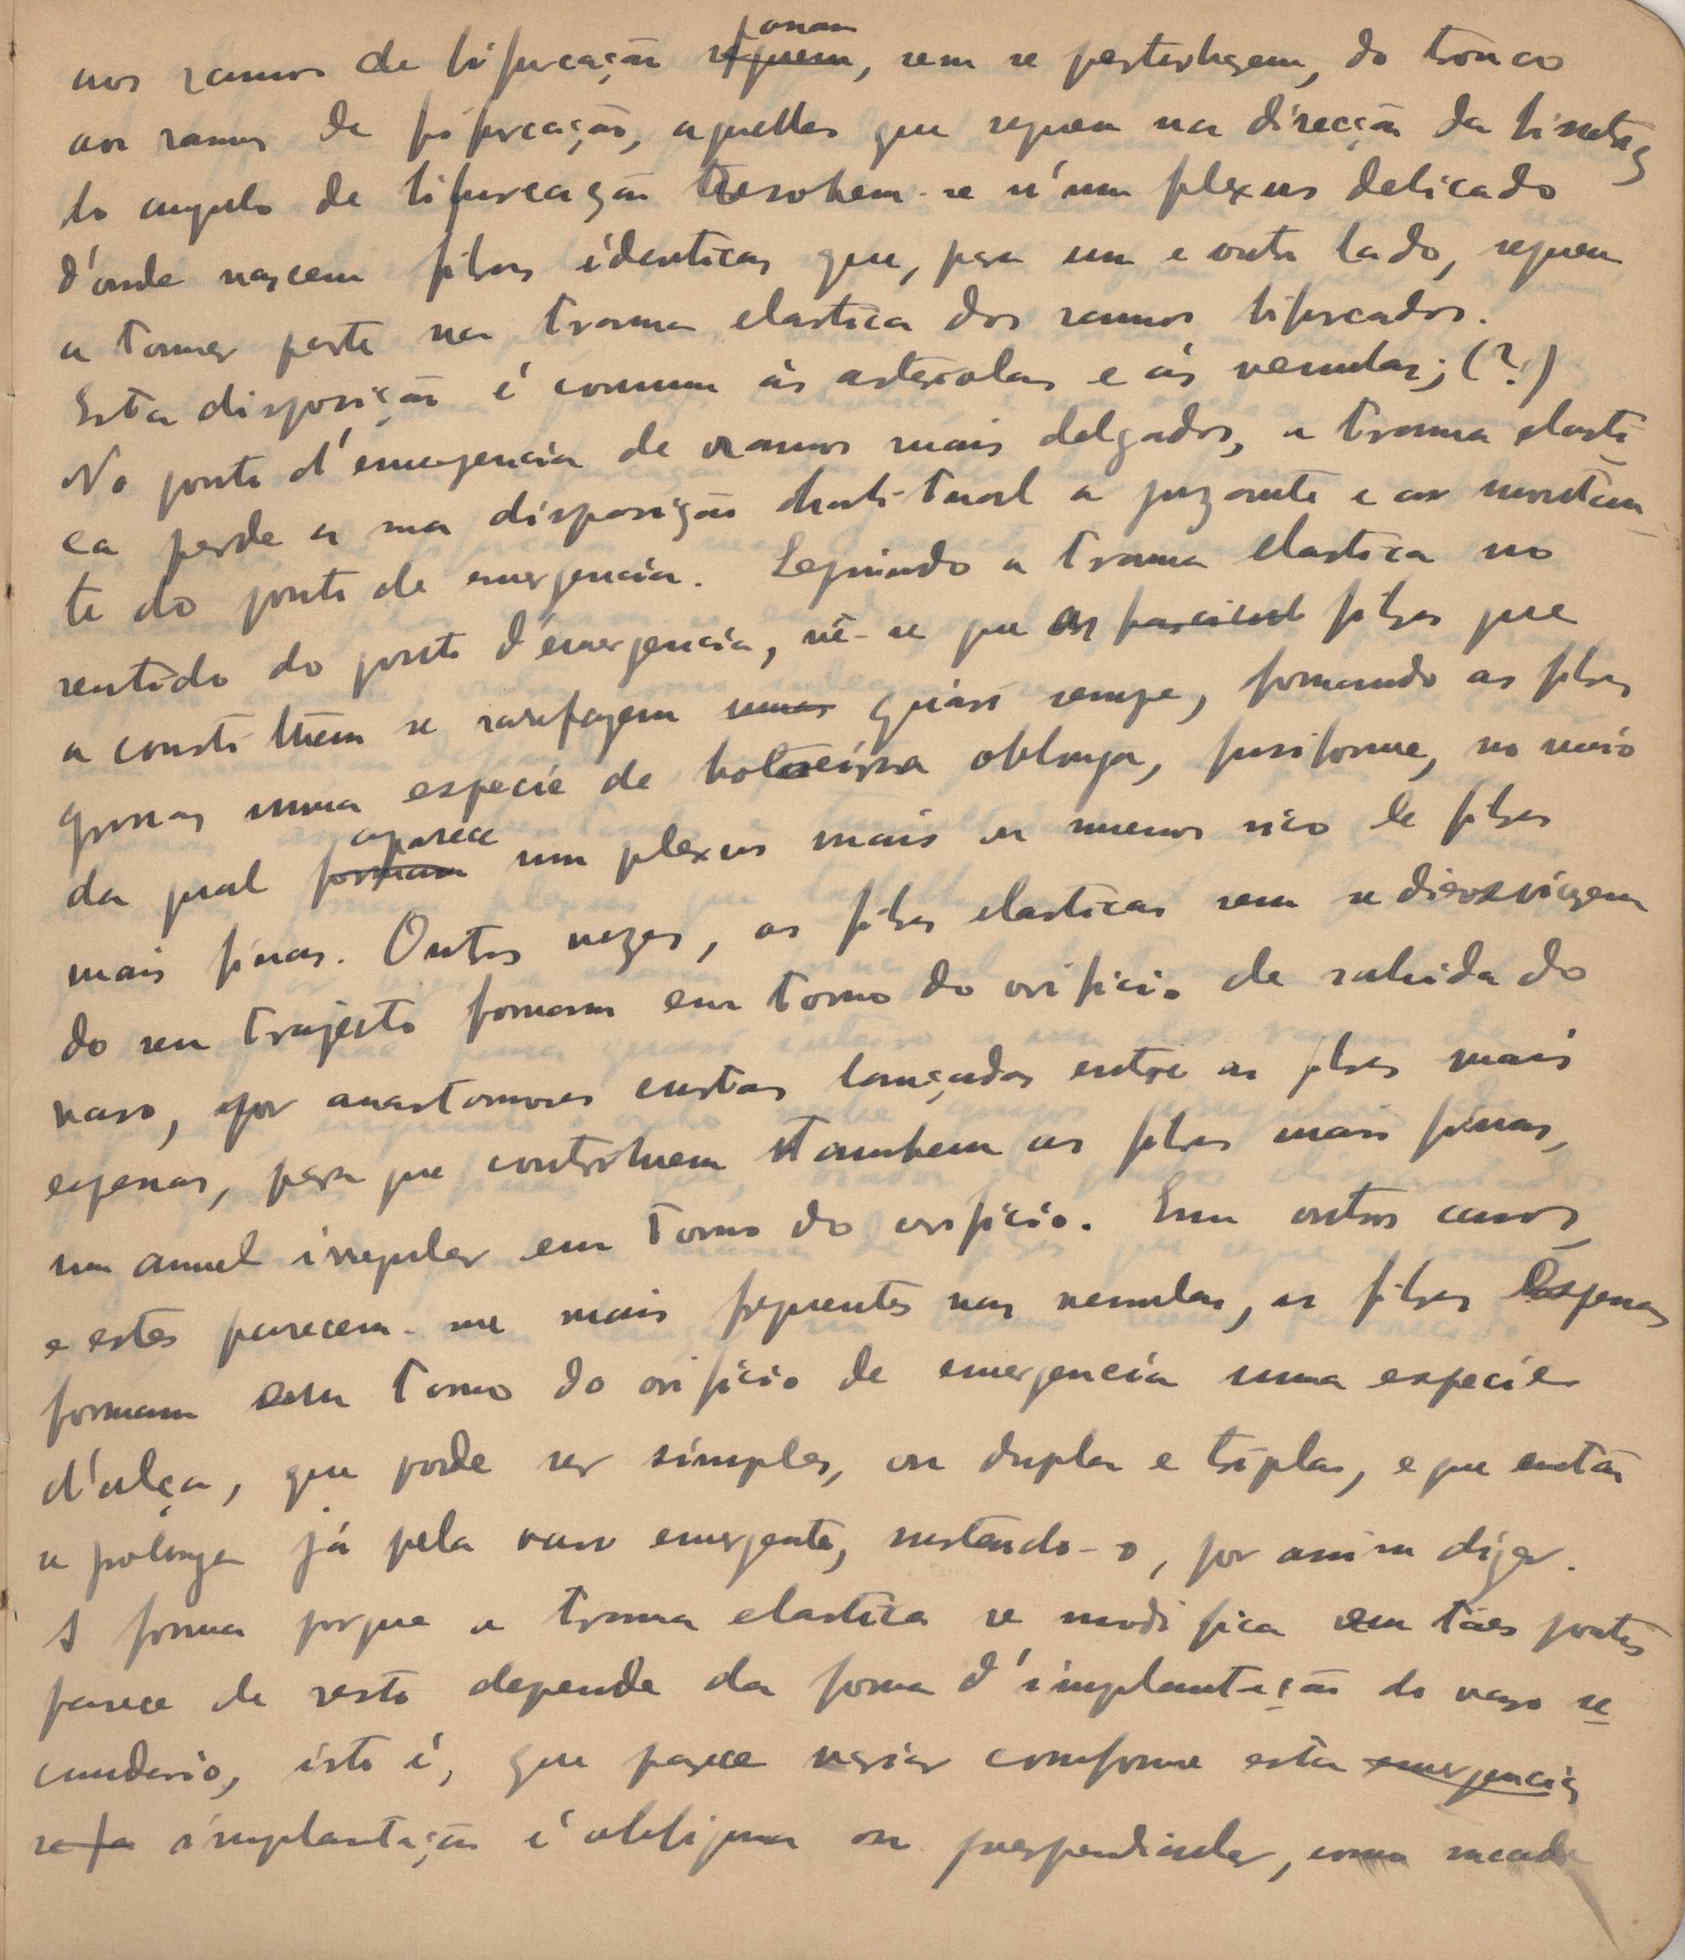 nos ramos de bifurcação passam, sem se perturbarem, do tronco
aos ramos de bifurcação, aquellas que seguem na direcção da bissetriz
do angulo de bifurcação resolvem-se n'um plexus delicado
d'onde nascem fibras identicas que, para um e outro lado, seguem
a tomar parte na trama elastica dos ramos bifurcados.
Esta disposição é commum ás arteriolas e ás venulas; (?)
No ponto d'emergencia de ramos mais delgados, a trama elasti
ca perde a sua disposição habitual a juzante e ao montan
te do ponto de emergencia. Seguindo a trama elastica no
sentido do ponto d'emergencia, vê-se que as fibras que
a constituem se rarefazem quási sempre, formando as fibras
grossas uma especie de botoeira oblonga, fusiforme, no meio
da qual aparece um plexus mais ou menos rico de fibras
mais finas. Outras vezes, as fibras elasticas sem se desviarem
do seu trajecto formam em torno do orificio de sahida do
vaso, por anastomoses curtas lançadas entre as fibras mais
espessas, para que contribuem tambem as fibras mais finas,
um annel irregular em torno do orificio. Em outros casos,
e estes parecem-me mais frequentes nas venulas, as fibras espessas
formam em torno do orificio de emergencia uma especie
d'alça, que pode ser simples, ou dupla e tripla, e que então
se prolonga já pelo vaso emergente, sustendo-o, por assim dizer.
A forma porque a trama elastica se modifica em táes pontos
parece de resto depender da forma d'implantação do vaso se
cundario, isto é, que parece variar comforme esta emergencia
implantação é obliqua ou perpendicular, como succede